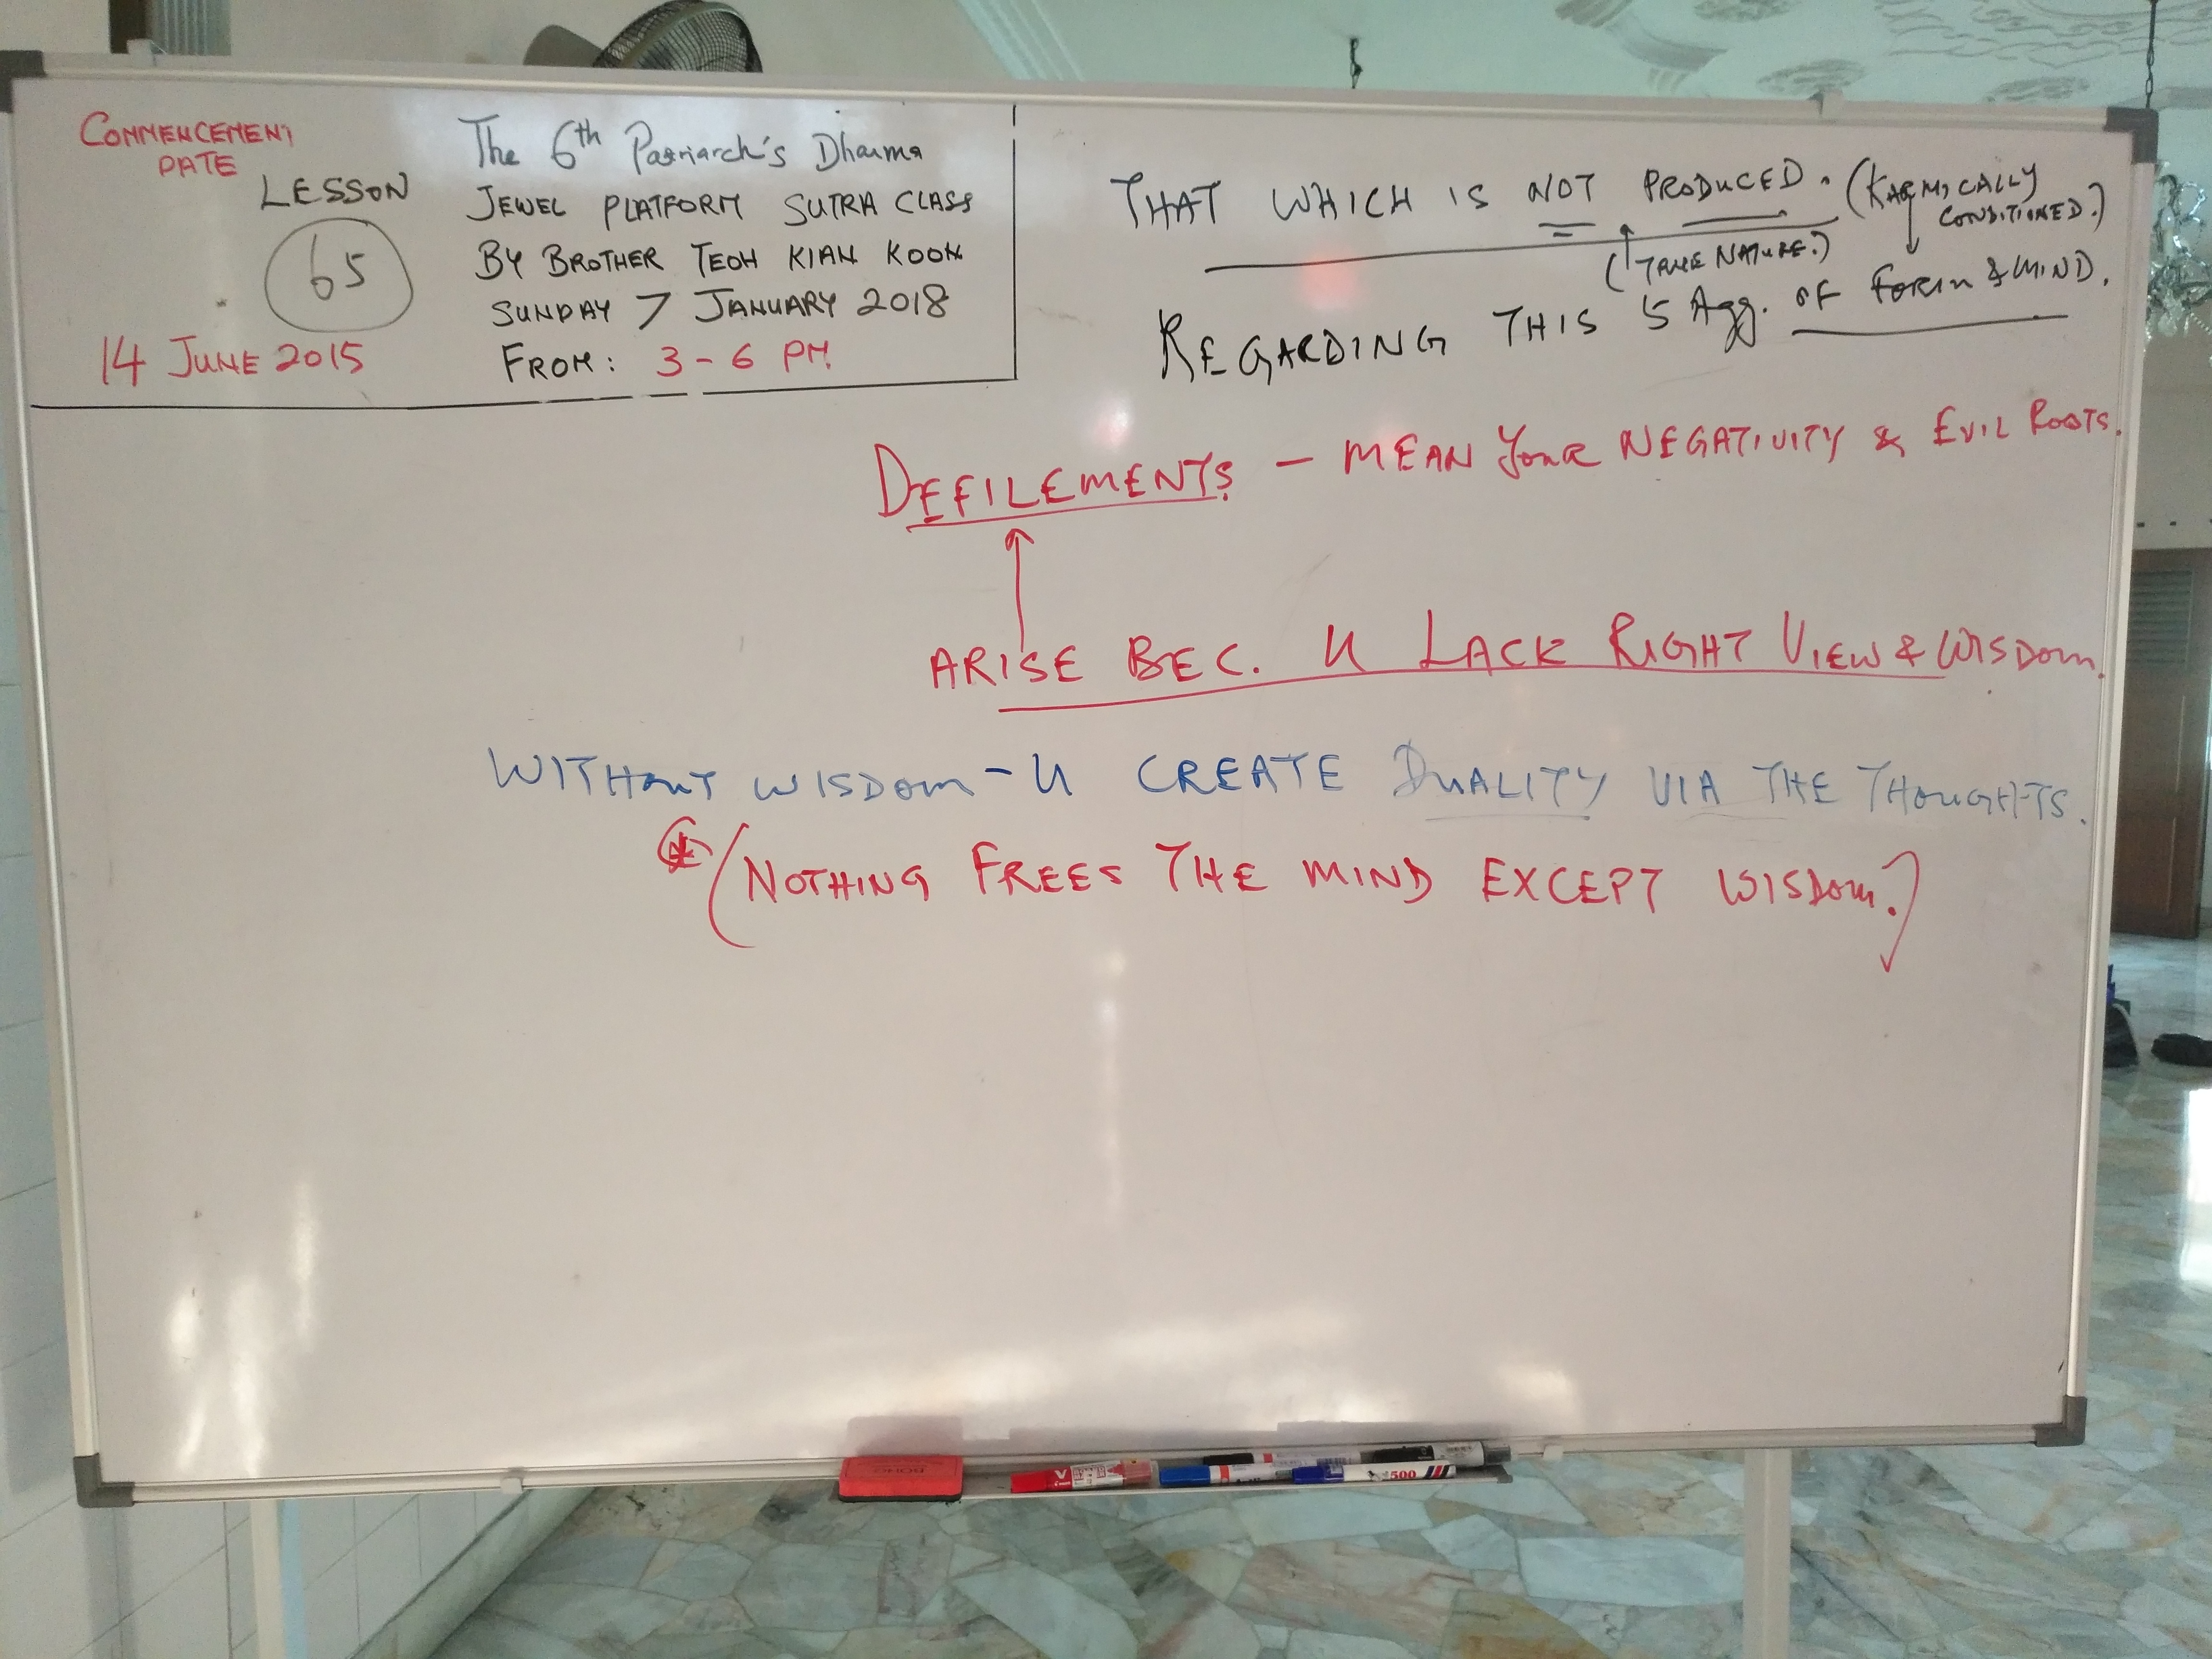 COMMENCEMENT
DATE
LESSON
65
14 JUNE 2015
The 6th Patriarch's Dharma
JEWEL PLATFORM SUTRA CLASS
BY BROTHER TEOH KIAN KOON
SUNDAY 7 JANUARY 2018
FROM: 3 - 6 PM
THAT WHICH IS NOT PRODUCED. (KARMICALLY
CONDITIONED.)
(TRUE NATURE.)
REGARDING THIS 5 Agg. OF FORM & MIND.
DEFILEMENTS - MEAN YOUR NEGATIVITY & EVIL ROOTS.
ARISE BEC. U LACK RIGHT VIEW & WISDOM.
WITHOUT WISDOM - U CREATE DUALITY VIA THE THOUGHTS.
(NOTHING FREES THE MIND EXCEPT WISDOM.)
500